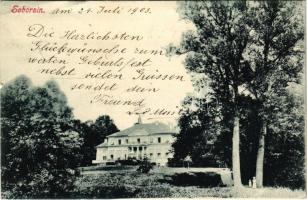 Soborsin. am 21. Juli 1903.
Die Herzlichsten
Glückwünsche zum
werten Geburtsfest
nebst vielen Grüssen
sendet dein
Freund